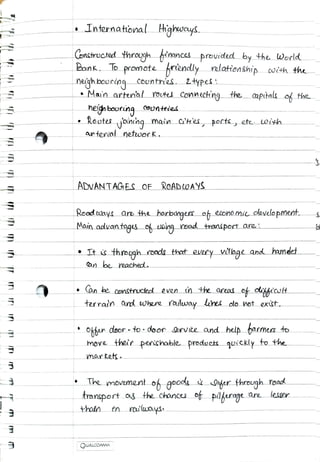 • International Highways.
Constructed through finances provided by the World
Bank. To promote friendly relationship with the
neighbouring countries. 2 types:
• Main arterial routes connecting the capitals of the
neighbouring countries
• Routes joining main cities, ports, etc with
arterial network.
ADVANTAGES OF ROADWAYS
Roadways are the harbingers of economic development.
Main advantages of using road transport are:
• It is through roads that every village and hamlet
can be reached.
• Can be constructed even in the areas of difficult
terrain and where railway lines do not exist.
• offer door-to-door service and help farmers to
move their perishable products quickly to the
markets.
• The movement of goods is safer through road
transport as the chances of pilferage are lesser
than in railways.